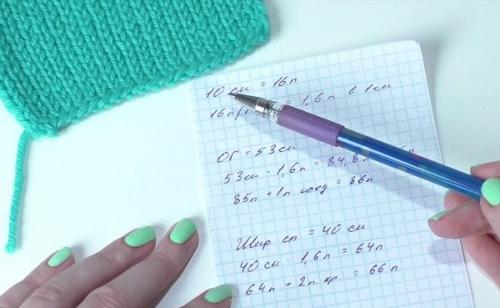 10 см = 16п
16п/1 1,6п в 1см
ОГ = 53см
53см · 1,6п = 84,8п
85п + 1п соед = 86п
Шир сп = 40 см
40 см · 1,6п = 64п
64п + 2п кр = 66п